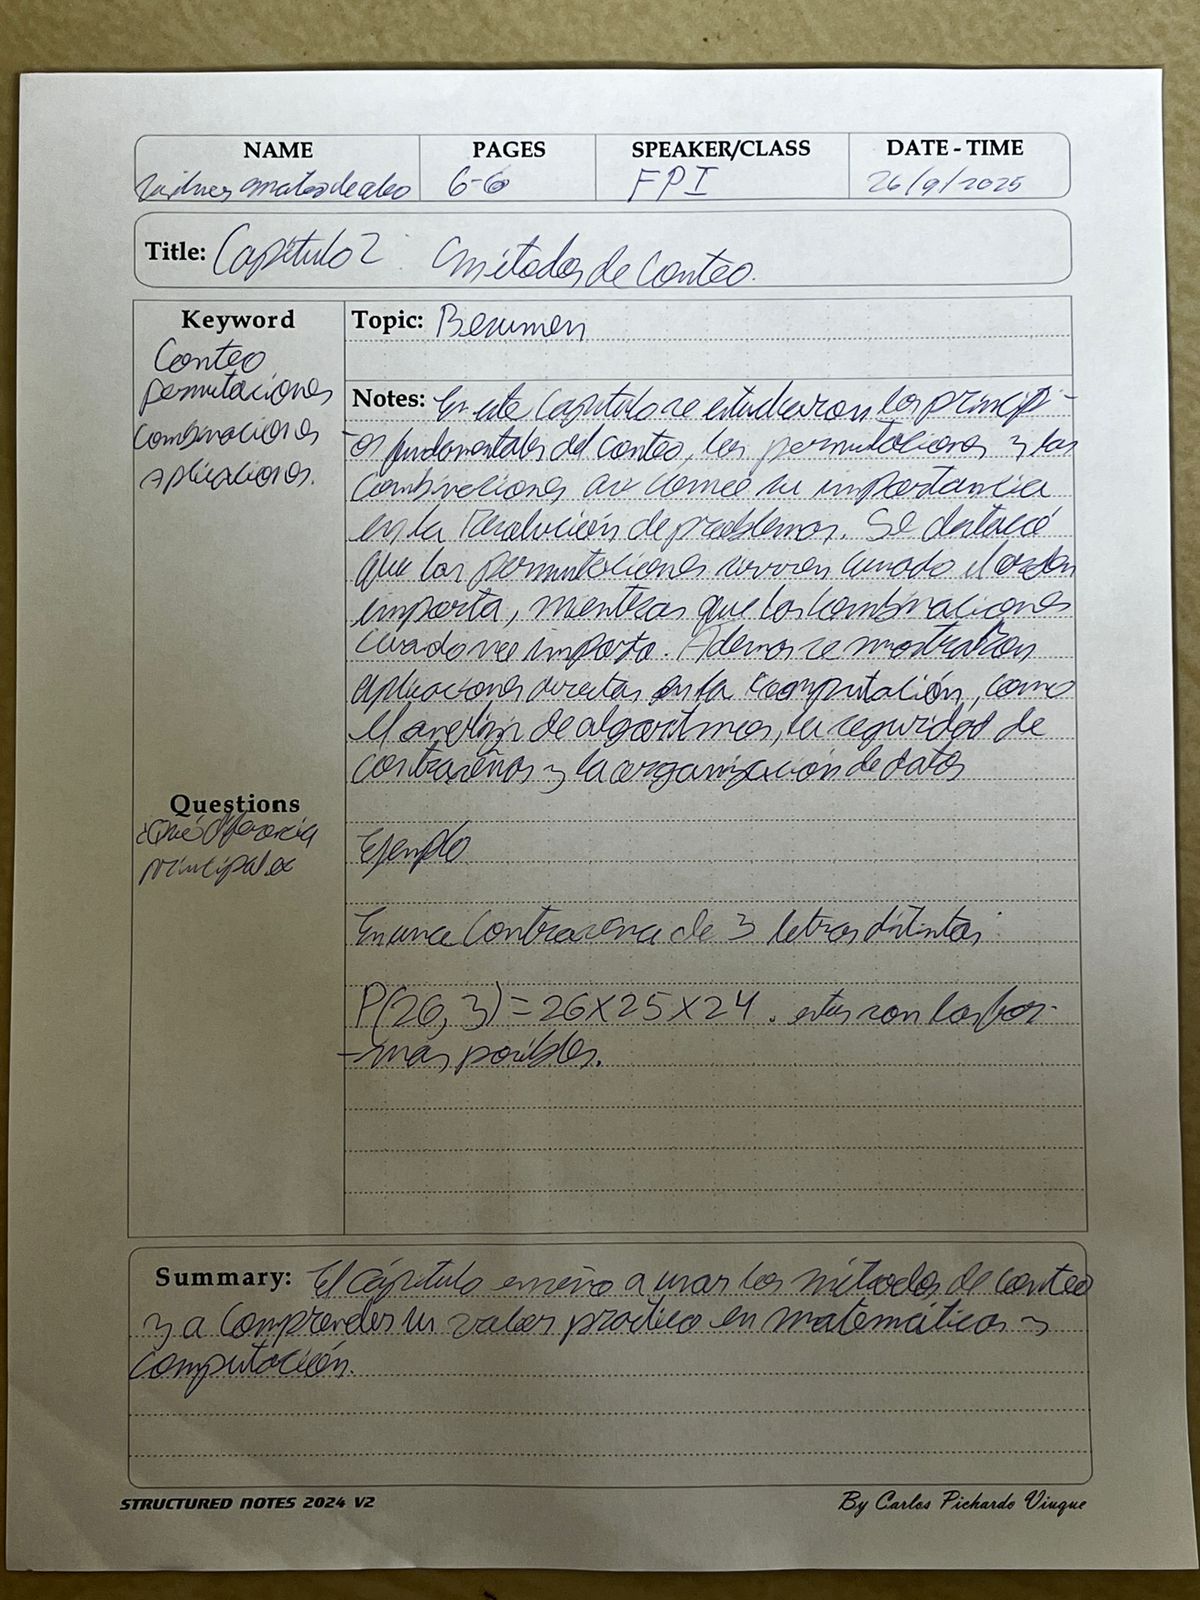 NAME PAGES SPEAKER/CLASS DATE - TIME
mateo de oleo 6-6 FPI 26/9/2025
Title: Capítulo 2: Métodos de Conteo.
Keyword
Conteo
permutaciones
Combinaciones
Aplicaciones.
Topic: Resumen
Notes: En este capitulo se estudiaron los princip-
-os fundamentales del conteo, las permutaciones y las
combinaciones asi como su importancia
en la Resolución de problemas. Se destacó
que las permutaciones sirven cuando el orden
importa, mientras que las combinaciones
cuando no importa. Ademas se mostraron
aplicaciones directas en la computación, como
el analisis de algoritmos, la seguridad de
contraseñas y la organización de datos
Questions
¿Qué diferencia
principal es
Ejemplo
En una Contrasena de 3 letras distintas
P(26,3)=26X25X24. estas son las for-
-mas posibles.
Summary: El capítulo enseño a usar los métodos de conteo
y a comprender su valor practico en matemáticas y
computación.
STRUCTURED NOTES 2024 V2 By Carlos Pichardo Viuque